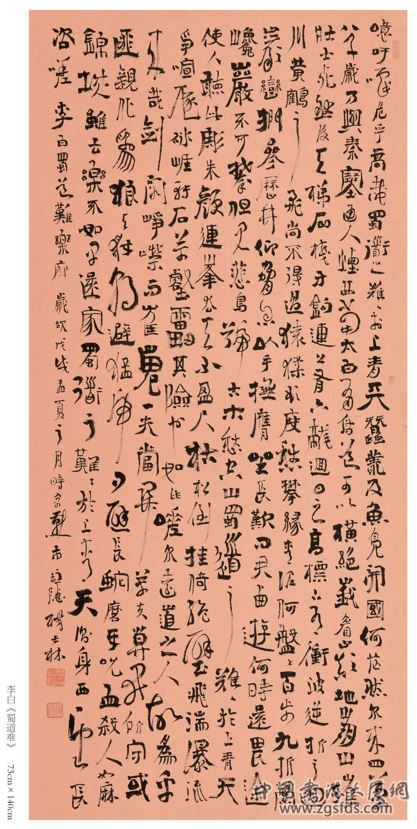 噫吁嚱危乎高哉蜀道之難難於上青天蠶叢及魚鳧開國何茫然尔來四萬
八千歲乃與秦塞通人煙西當太白有鳥道可以橫絕峨眉巔地崩山摧
壯士死然後天梯石棧方鉤連上有六龍迴日之高標下有衝波逆折之回
川黃鶴之飛尚不得過猿猱欲度愁攀緣青泥何盤盤百步九折縈
岩巒捫參歷井仰脅息以手撫膺坐長歎問君西遊何時還畏途
巉巖不可攀但見悲鳥號古木愁空山蜀道之難難於上青天
使人聽此彫朱顏連峯去天不盈尺枯松倒挂倚絕壁飛湍瀑流
爭喧豗砯崖轉石萬壑雷其險也如此嗟尔遠道之人胡為乎
來哉劍閣崢嶸而崔嵬一夫當關萬夫莫開所守或
匪親化為狼與豺朝避猛虎夕避長蛇磨牙吮血殺人如麻
錦城雖云樂不如早還家蜀道之難難於上青天側身西望長
咨嗟 李白蜀道難樂府 歲次戊戌孟夏之月時 士林
李白《蜀道难》 73cm×140cm
www.zgsfds.com